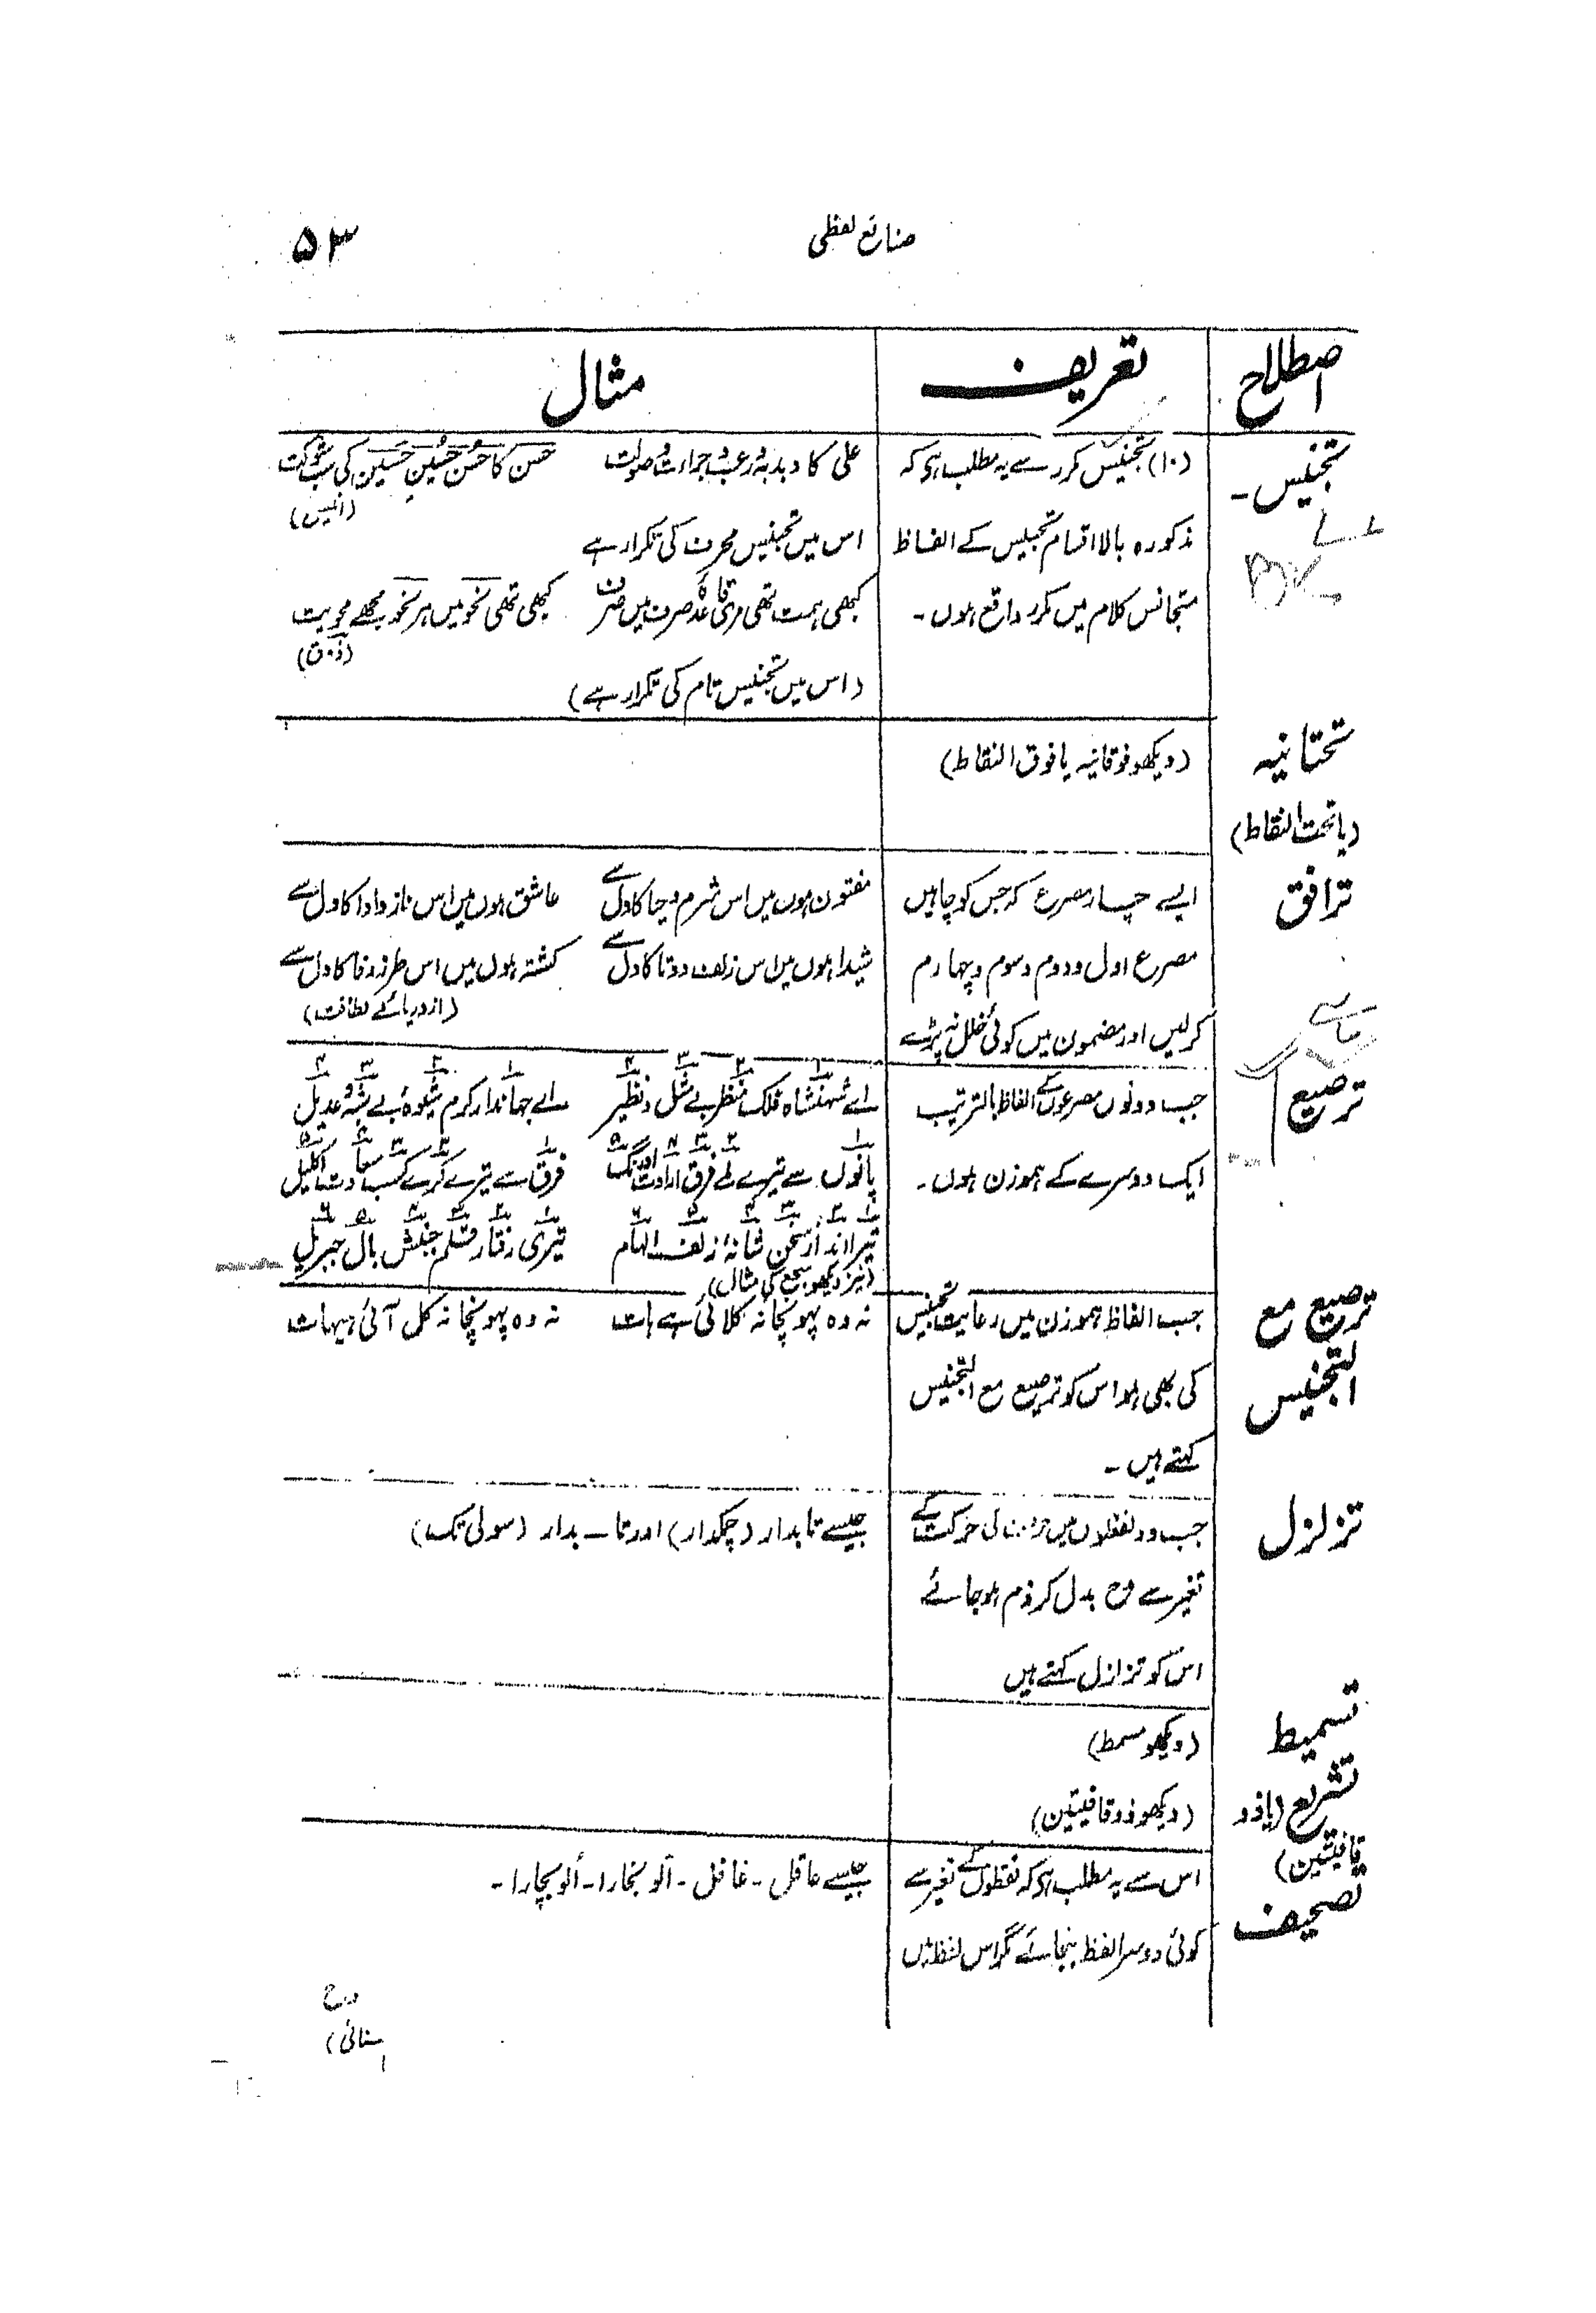 صنائع لفظی
۵۳
اصطلاح
تعریف
مثال
تجنیس۔
(۱۰) تجنیس مکرر سے یہ مطلب ہے کہ
مذکورہ بالا اقسام تجنیس کے الفاظ
متجانس کلام میں مکرر واقع ہوں۔
علی کا دبدبہ و رعب و جراءت و صولت
حسن کا حُسن حُسین حَسین کی سب شوکت
(انیس)
اس میں تجنیس محرف کی تکرار ہے
کبھی ہمت تھی مری قاعدۂ صرف میں صرف
کبھی تھی نحو میں ہر نحو مجھے محویت
(ذوق)
(اس میں تجنیس تام کی تکرار ہے)
تحتانیہ
(یا تحت النقاط)
(دیکھو فوقانیہ یا فوق النقاط)
ترافق
ایسے چار مصرع کہ جس کو چاہیں
مصرع اول و دوم و سوم و چہارم
کرلیں اور مضمون میں کوئی خلل نہ پڑے
مفتون ہوں میں اس شرم و حیا کا دل سے
عاشق ہوں میں اس ناز و ادا کا دل سے
شیدا ہوں میں اس زلف دوتا کا دل سے
کشتہ ہوں میں اس طرز وفا کا دل سے
(از دریائے لطافت)
ترصیع
جب دونوں مصرعوں کے الفاظ بالترتیب
ایک دوسرے کے ہموزن ہوں۔
اے شہنشاہ فلک منظر بے مثل و نظیر
اے جہاندار کرم شیوۂ بے شبہ و عدیل
پانوں سے تیرے ملے فرق ارادت اورنگ
فرق سے تیرے کرے کسب سعادت اکلیل
تیرا انداز سخن شانۂ زلف الہام
تیری رفتار قلم جنبش بال جبریل
(نیز دیکھو سجع کی مثال)
ترصیع مع
التجنیس
جب الفاظ ہموزن میں رعایت تجنیس
کی بھی ہو اس کو ترصیع مع التجنیس
کہتے ہیں۔
نہ وہ پہونچا نہ کلائی ہے ہات
نہ وہ پہونچا نہ کل آئی ہیہات
تزلزل
جب دو لفظوں میں حرکت کے
تغیر سے مدح بدل کر ذم ہو جائے
اس کو تزلزل کہتے ہیں
جیسے تابدار (چمکدار) اور تا ۔ بدار (سولی تک)
تسمیط
(دیکھو مسمط)
تشریع (یا ذو
قافیتین)
(دیکھو ذو قافیتین)
تصحیف
اس سے یہ مطلب ہے کہ نقطوں کے تغیر سے
کوئی دوسرا لفظ بنجائے مگر اس لفظ میں
جیسے عاقل ۔ غافل ۔ آلو بخارا ۔ اُلو بچارا ۔